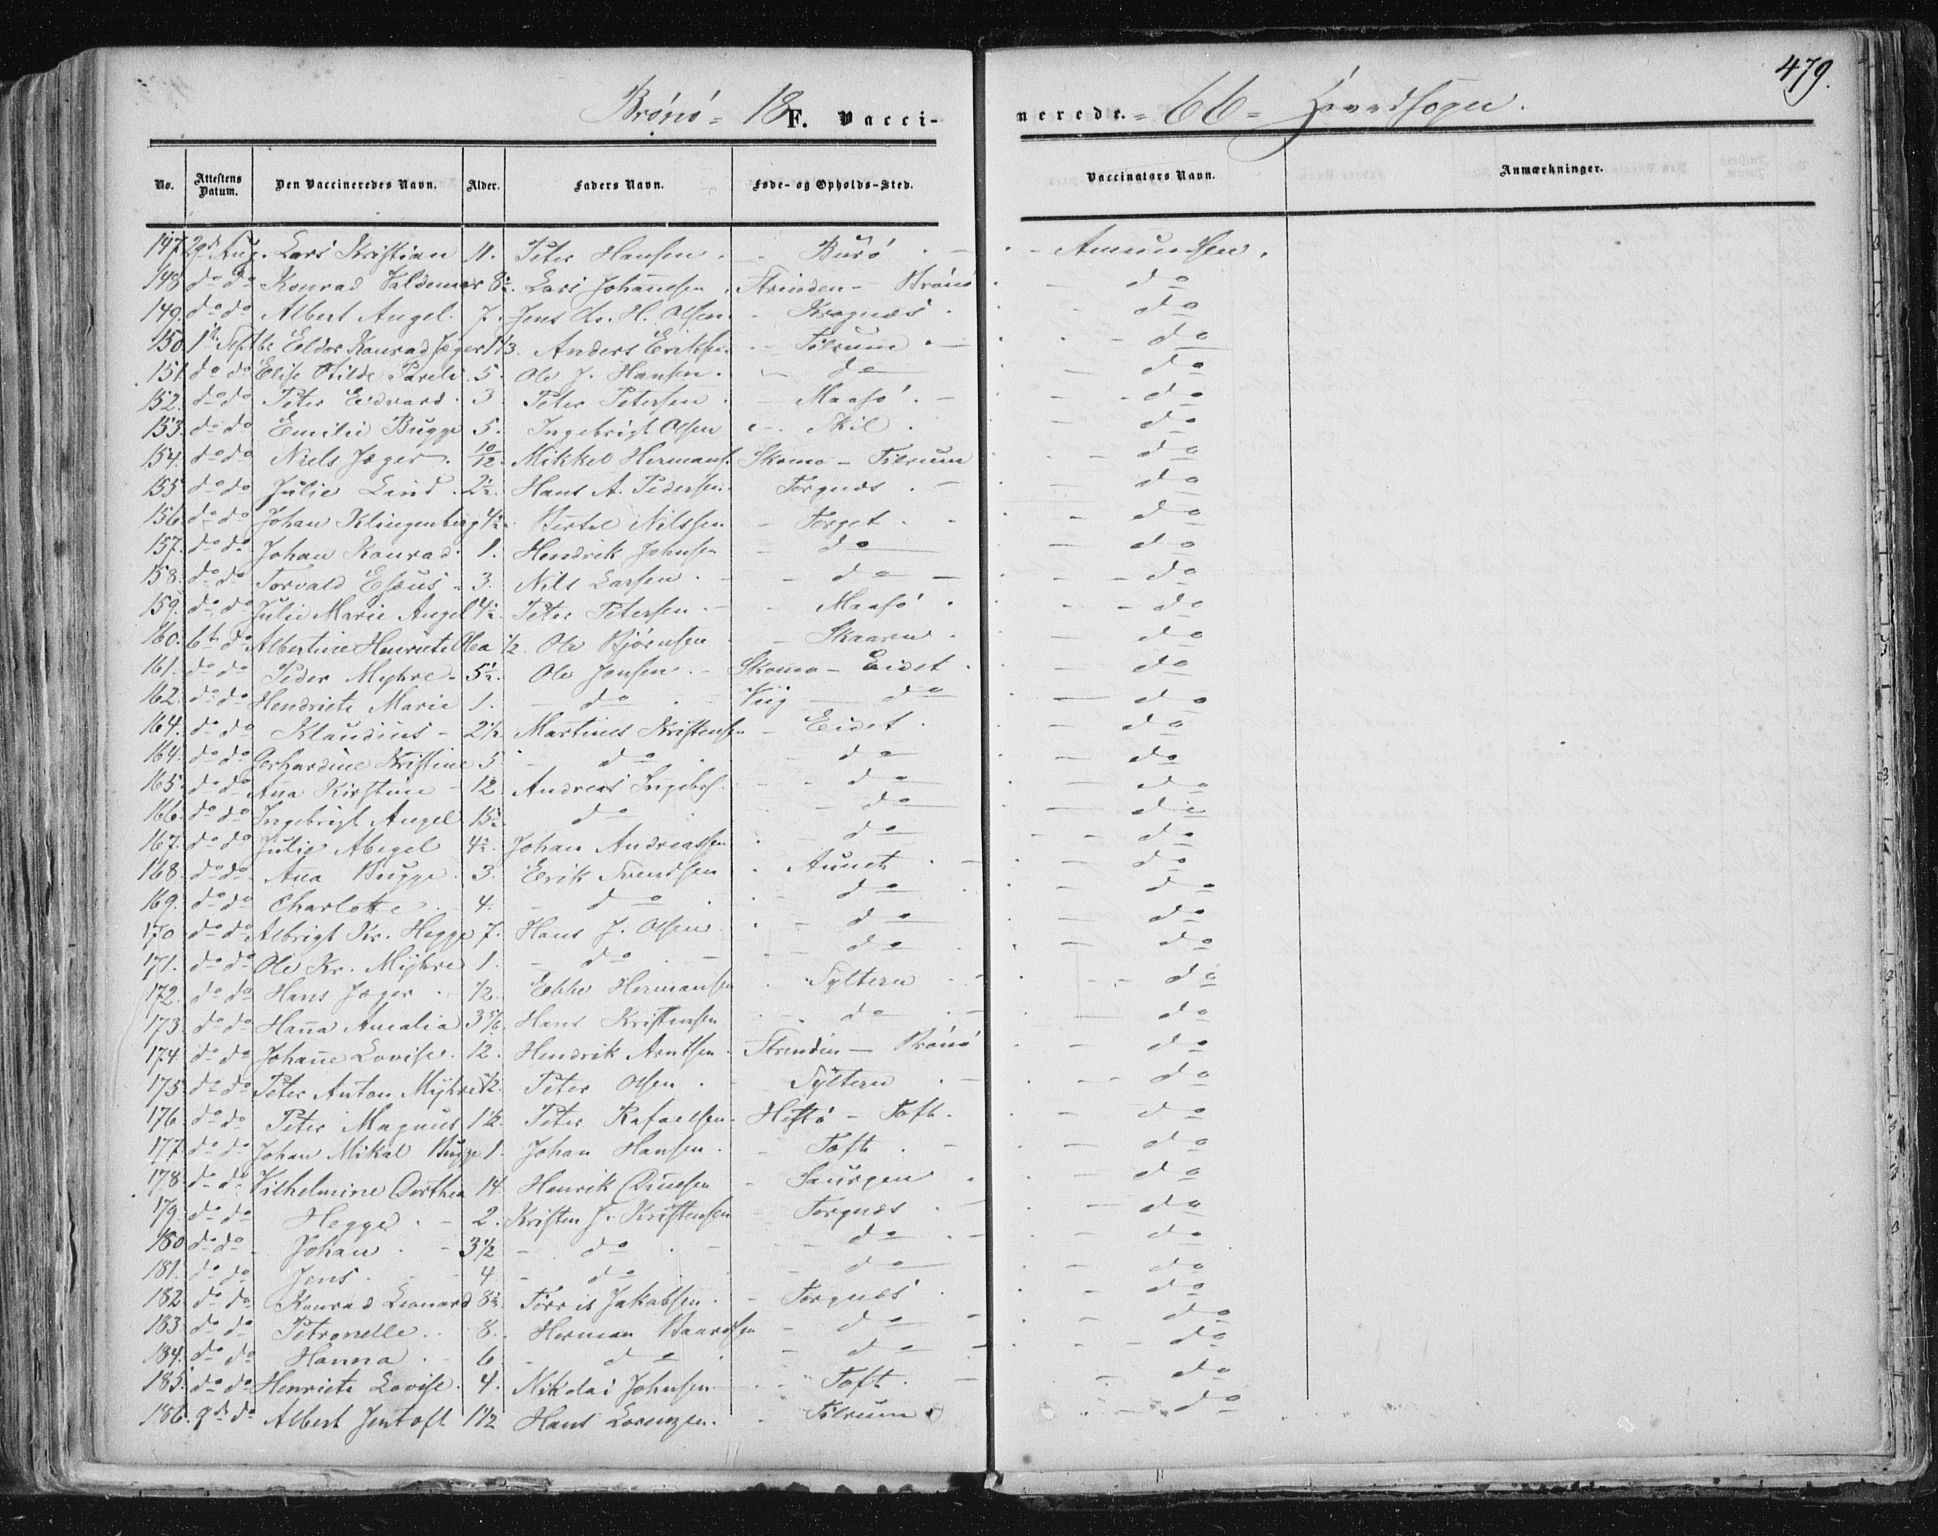 479.
Brønø = 18 F. Vacci-nerede. = 66 = Hovedsogn.
No. Attestens Datum. Den Vaccineredes Navn. Alder. Faders Navn. Føde- og Opholds-Sted. Vaccinatørs Navn. Anmærkninger.
147. 29d Aug. Lars Kristian 11. Peter Hansen. - Burø - Amundsen.
148. do do Konrad Valdemar 8½. Lars Johannesen. Strinden - Brønø - do
149. do do Albert Angel. 7. Jens Chr. H. Olsen. - Krognæs - do
150. 1te Septbr Eldor Konrad Jæger 1 1/3. Anders Eriksen. - Tilrum - do
151. do do Elise Otilde Pareli. 5. Ole J. Hansen. - do - do
152. do do Peter Edvard. 3 Peter Petersen. - Maasø. - do
153. do do Emilie Bugge 5. Ingebrigt Olsen - Skil. - do
154. do do Niels Jæger. 10/12. Mikkel Hermans. Skomo - Tilrum - do
155 do do Julie Lind. 2½. Hans A. Pedersen. Torgnæs. - do
156. do do Johan Klingenberg 4½. Bertel Nilssen - Torget. - do
157. do do Johan Konrad. 1. Hendrik Johnsen - do - do
158. do do Torvald Esæus - 3. Nils Larsen. - do - do
159. do do Julie Marie Angel 4½. Peter Petersen. - Maasø. - do
160. 6te do Albertine Henriete Olea ½. Ole Bjørnsen - Skaaren. - do
161. do do Peder Myhre - 5½. Ole Jensen. - Skomo - Eidet. - do
162. do do Hendriete Marie 1. - do - Viig - do - do
164. do do Klaudius - 2½. Martinus Kristensen - Eidet. - do
164. do do Gerhardine Kristine 5. - do - do - do
165. do do Ana Kirstine - 12. Andreas Ingebr. - do - do
166. do do Ingebrigt Angel 15½. do - do - do
167. do do Julie Abigel 4½. Johan Andreassen - do - do
168. do do Ana Bugge. 3. Erik Svendsen - Aunet. - do
169. do do Charlotte. - 4. - do - do - do
170. do do Albrigt Kr. Hegge 7. Hans J. Olsen. - do - do
171. do do Ole Kr. Myhre 1. - do - do - do
172. do do Hans Jæger. ½. Ebbe Hermansen - Tyltern - do
173. do do Hanna Amalia 3 5/6. Hans Kristensen - do - do
174. do do Johanne Lovise. 12. Hendrik Arntsen. Strinden - Brønø - do
175 do do Peter Anton Myhre ½. Peter Olsen. - Tyltern - do
176. do do Peter Magnus 1½. Peter Rafaelsen. Hestø - Toft. - do
177. do do Johan Mikal Bugge 1. Johan Hansen. - Toft. - do
178. do do Vilhelmine Dorthea 14. Henrik - Saurgen - do
179. do do Hegge. - 2. Kristen J. Kristensen - Torgnæs - do
180 do do Johan. - 3½ - do - do - do
181. do do Jens. - 4. - do - do - do
182. do do Konrad Leonard 8½. Torris Jakobsen. - Torgnæs - do
183. do do Petronelle. 8. Herman Baardsen - do - do
184. do do Hanna. 6. - do - do - do
185. do do Henriete Lovise. 4. Nikolai Johnsen - Toft. - do
186. 9de do Albert Jentoft 1½ Hans Lorenzen. - Tilrum - do